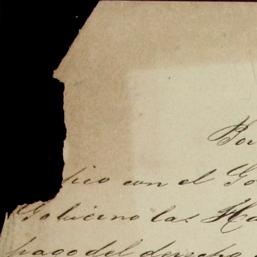 Por
lico con el Go
Gobierno las Ha
pago del derecho